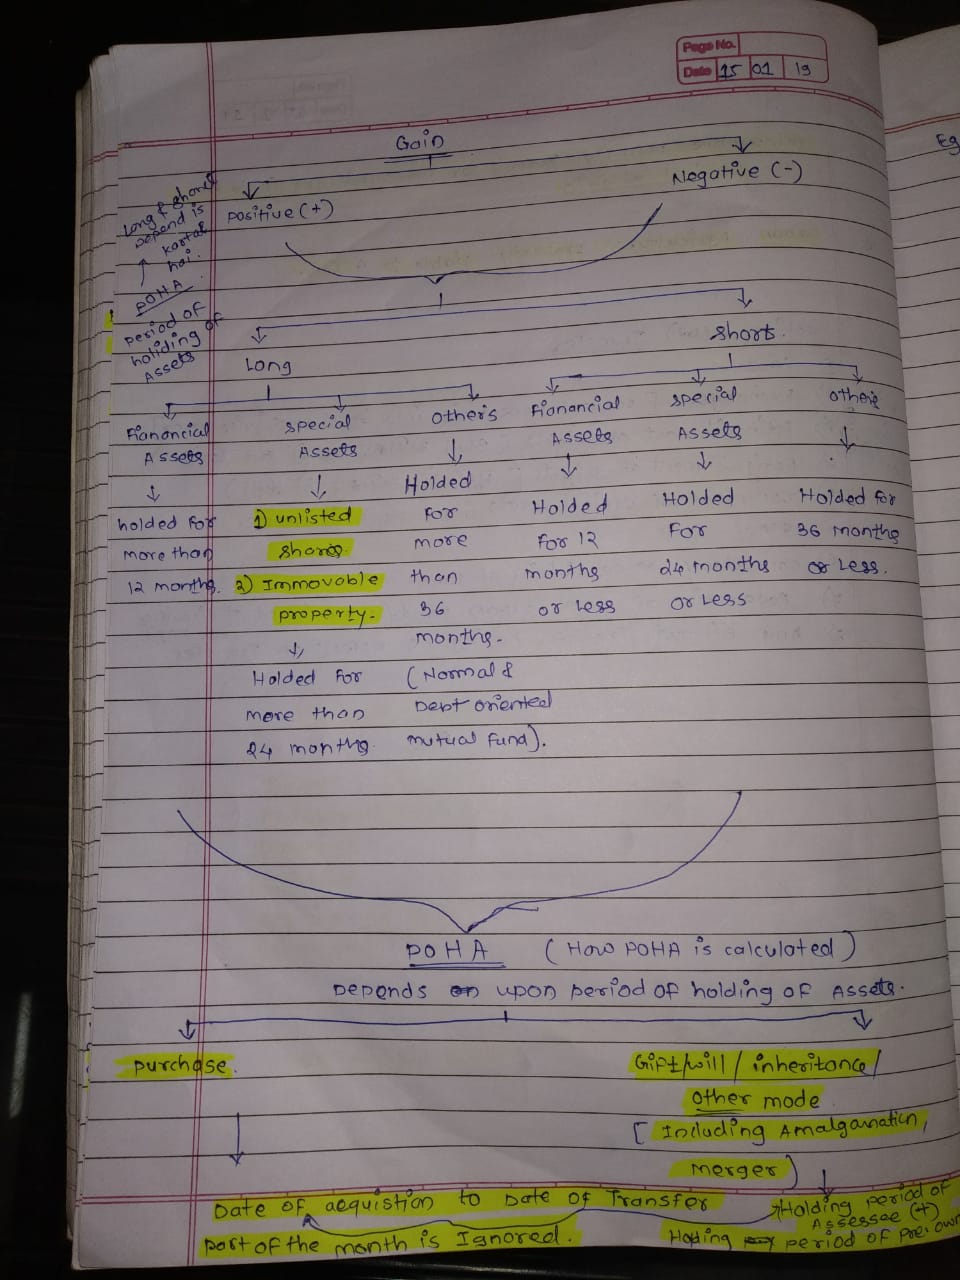 Page No.
Date 15 01 19
Eg
Gain
Positive (+)
Negative (-)
Long & short
Depend is
kartah
hai.
POHA
period of
holiding of
Assets
Long
Short.
Fianancial
Assets
holded for
more than
12 months.
special
Assets
1) unlisted
shares.
2) Immovable
property.
Holded For
more than
24 months.
other's
Holded
For
more
than
36
months.
(Normal &
Dept oriented
mutual fund).
Fianancial
Assets
Holded
for 12
months
or Less
special
Assets
Holded
For
24 months
or Less
other's
Holded for
36 months
or Less.
POHA (How POHA is calculated)
Depends upon period of holding of Assets.
purchase.
Gift/will/inheritance/
other mode
[Including Amalgamation,
merger)
Date of acquistion to Date of Transfer
part of the month is Ignored.
Holding period of
Assessee (+)
period of Prei. own